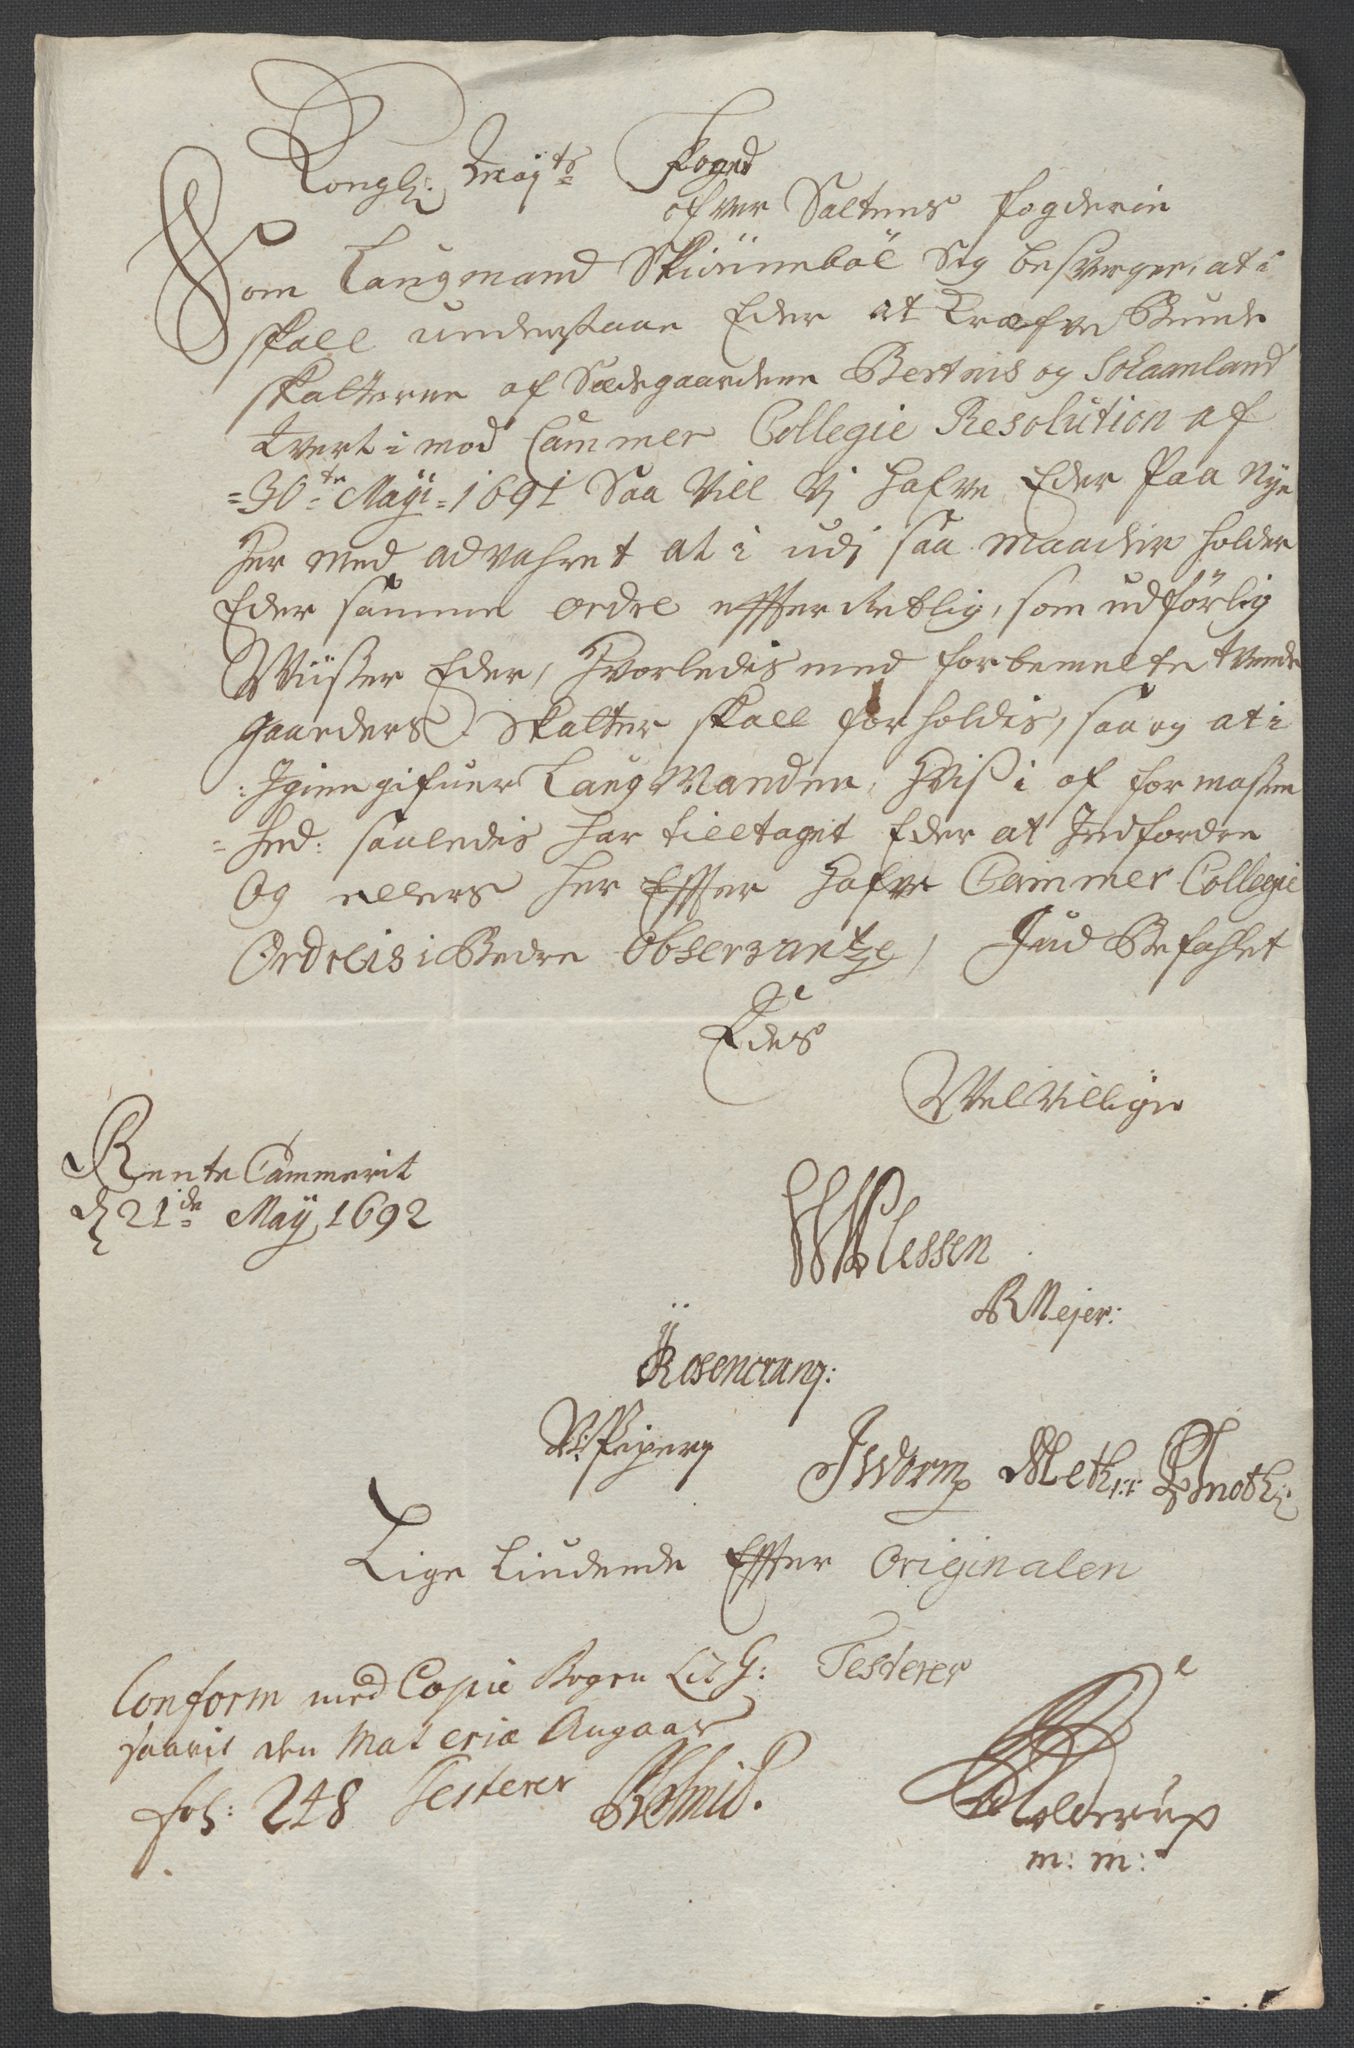 Kongl: Mayts Foged
ofver Saltens fogderie
Som Laugmand Skiönneböl Sig besverger, at i
skall understaae Eder at Kræfve Bunde
skatterne af Sædegaardene Bertnis og Solaanland
tvert i mod Cammer Collegie Resolution af
=30te Maji=1691 Saa Vill Vj Hafve Eder Paa Nye
Her med advahret at i udj saa maader holder
Eder samme ordre effterRetlig, som udförlig
Wiisser Eder, Hvorledis med forbemelte tvende
gaarders Skatter skall forholdis, saa og at i
Igiengifuer LaugManden, Hviss i af formassen
=hed: saaledis har tilltaget Eder at Indfordre
Og ellers her Effter Hafve Cammer Collegie
Ordreis i Bedre Observantze, Ind Befahlet
Edes
Welvillige
Rente Cammerit
d 21de Maij 1692
Plessen
R Mejer:
Rosencrang:
JWorm Meth:: Knoth:
Lige Liudende Effter Originalen
Conform med Copie Bogen Lit G: Testerer
saavit den Materie Angaar
fol: 248 Testerer Schmid.
Tolderup
m: m: